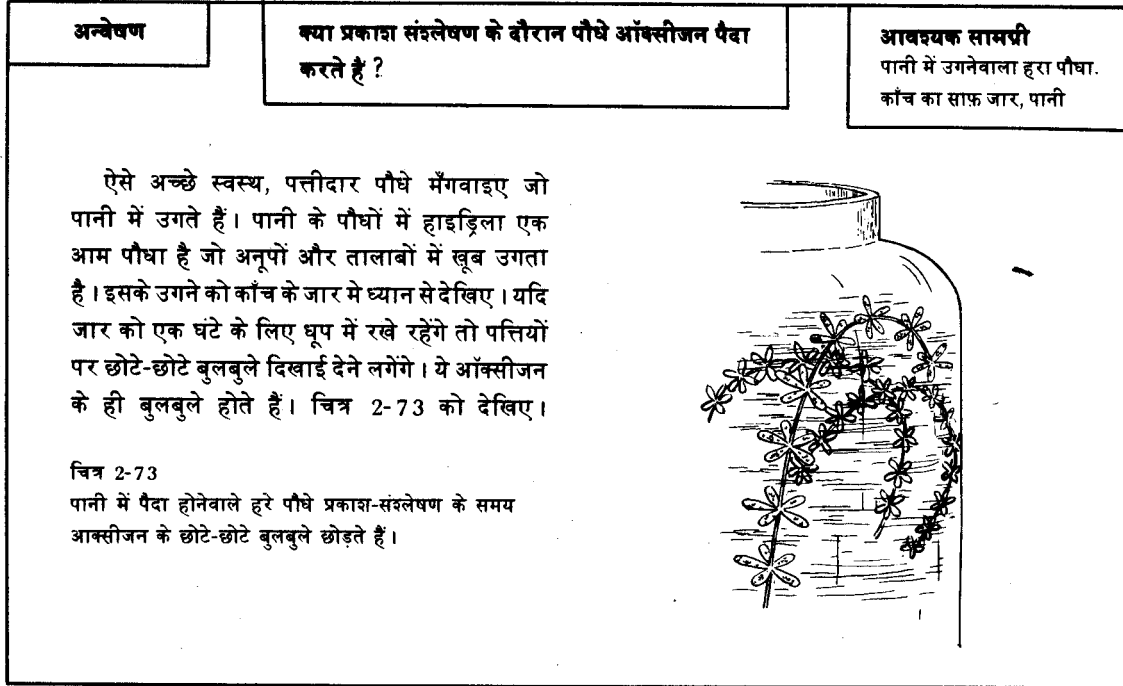 अन्वेषण
क्या प्रकाश संश्लेषण के दौरान पौधे ऑक्सीजन पैदा
करते हैं ?
आवश्यक सामग्री
पानी में उगनेवाला हरा पौधा.
काँच का साफ़ जार, पानी
ऐसे अच्छे स्वस्थ, पत्तीदार पौधे मँगवाइए जो
पानी में उगते हैं। पानी के पौधों में हाइड्रिला एक
आम पौधा है जो अनूपों और तालाबों में खूब उगता
है। इसके उगने को काँच के जार मे ध्यान से देखिए। यदि
जार को एक घंटे के लिए धूप में रखे रहेंगे तो पत्तियों
पर छोटे-छोटे बुलबुले दिखाई देने लगेंगे। ये ऑक्सीजन
के ही बुलबुले होते हैं। चित्र 2-73 को देखिए।
चित्र 2-73
पानी में पैदा होनेवाले हरे पौधे प्रकाश-संश्लेषण के समय
आक्सीजन के छोटे-छोटे बुलबुले छोड़ते हैं।